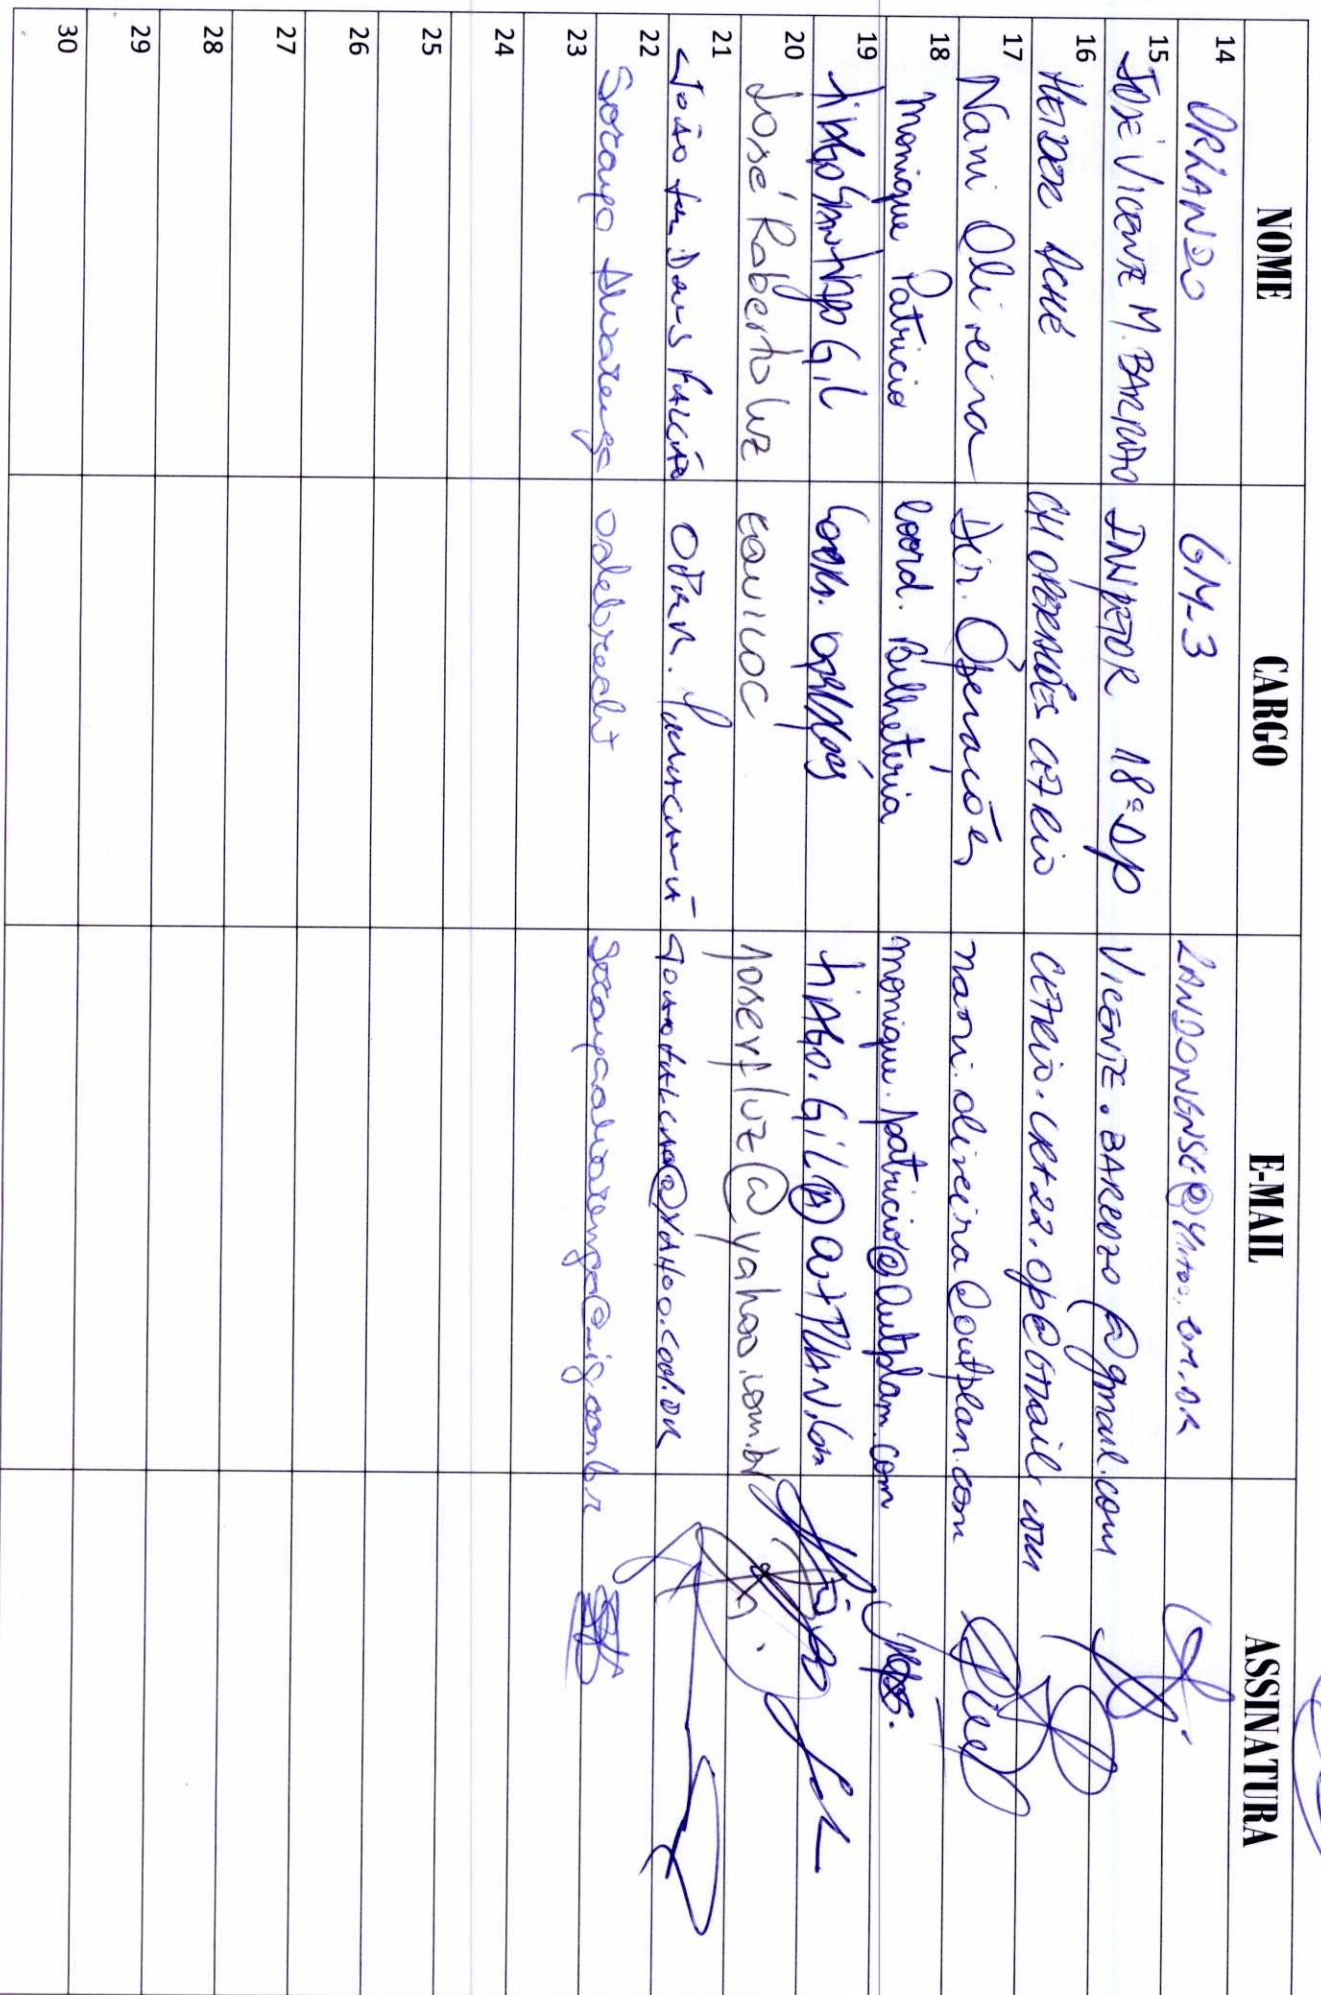 NOME CARGO E-MAIL ASSINATURA
14 ORLANDO GM-3
15 JOSÉ VICENTE M. BARRADO INSPETOR 18ª DP VICENTE.BARRDZO@gmail.com
16 HEIDER ACHÉ CH OPERAÇÕES CET RIO CETRIO.CRT22.OP@GMAIL.com
17 Nani Oliveira Dir. Operações nani.oliveira@outplan.com
18 Monique Patricio Coord. Bilheteria monique.patricio@outplan.com
19 tiAgo SANtiAgo GiL Coord. OPERAÇÕES tiAgo.GiL@outPLAN.com
20 José Roberto Luz joserfluz@yahoo.com.br
21 João FALCÃO @YAHOO.COM.BR
22 Socorpo Alvarenga Odebrecht @ig.com.br
23
24
25
26
27
28
29
30